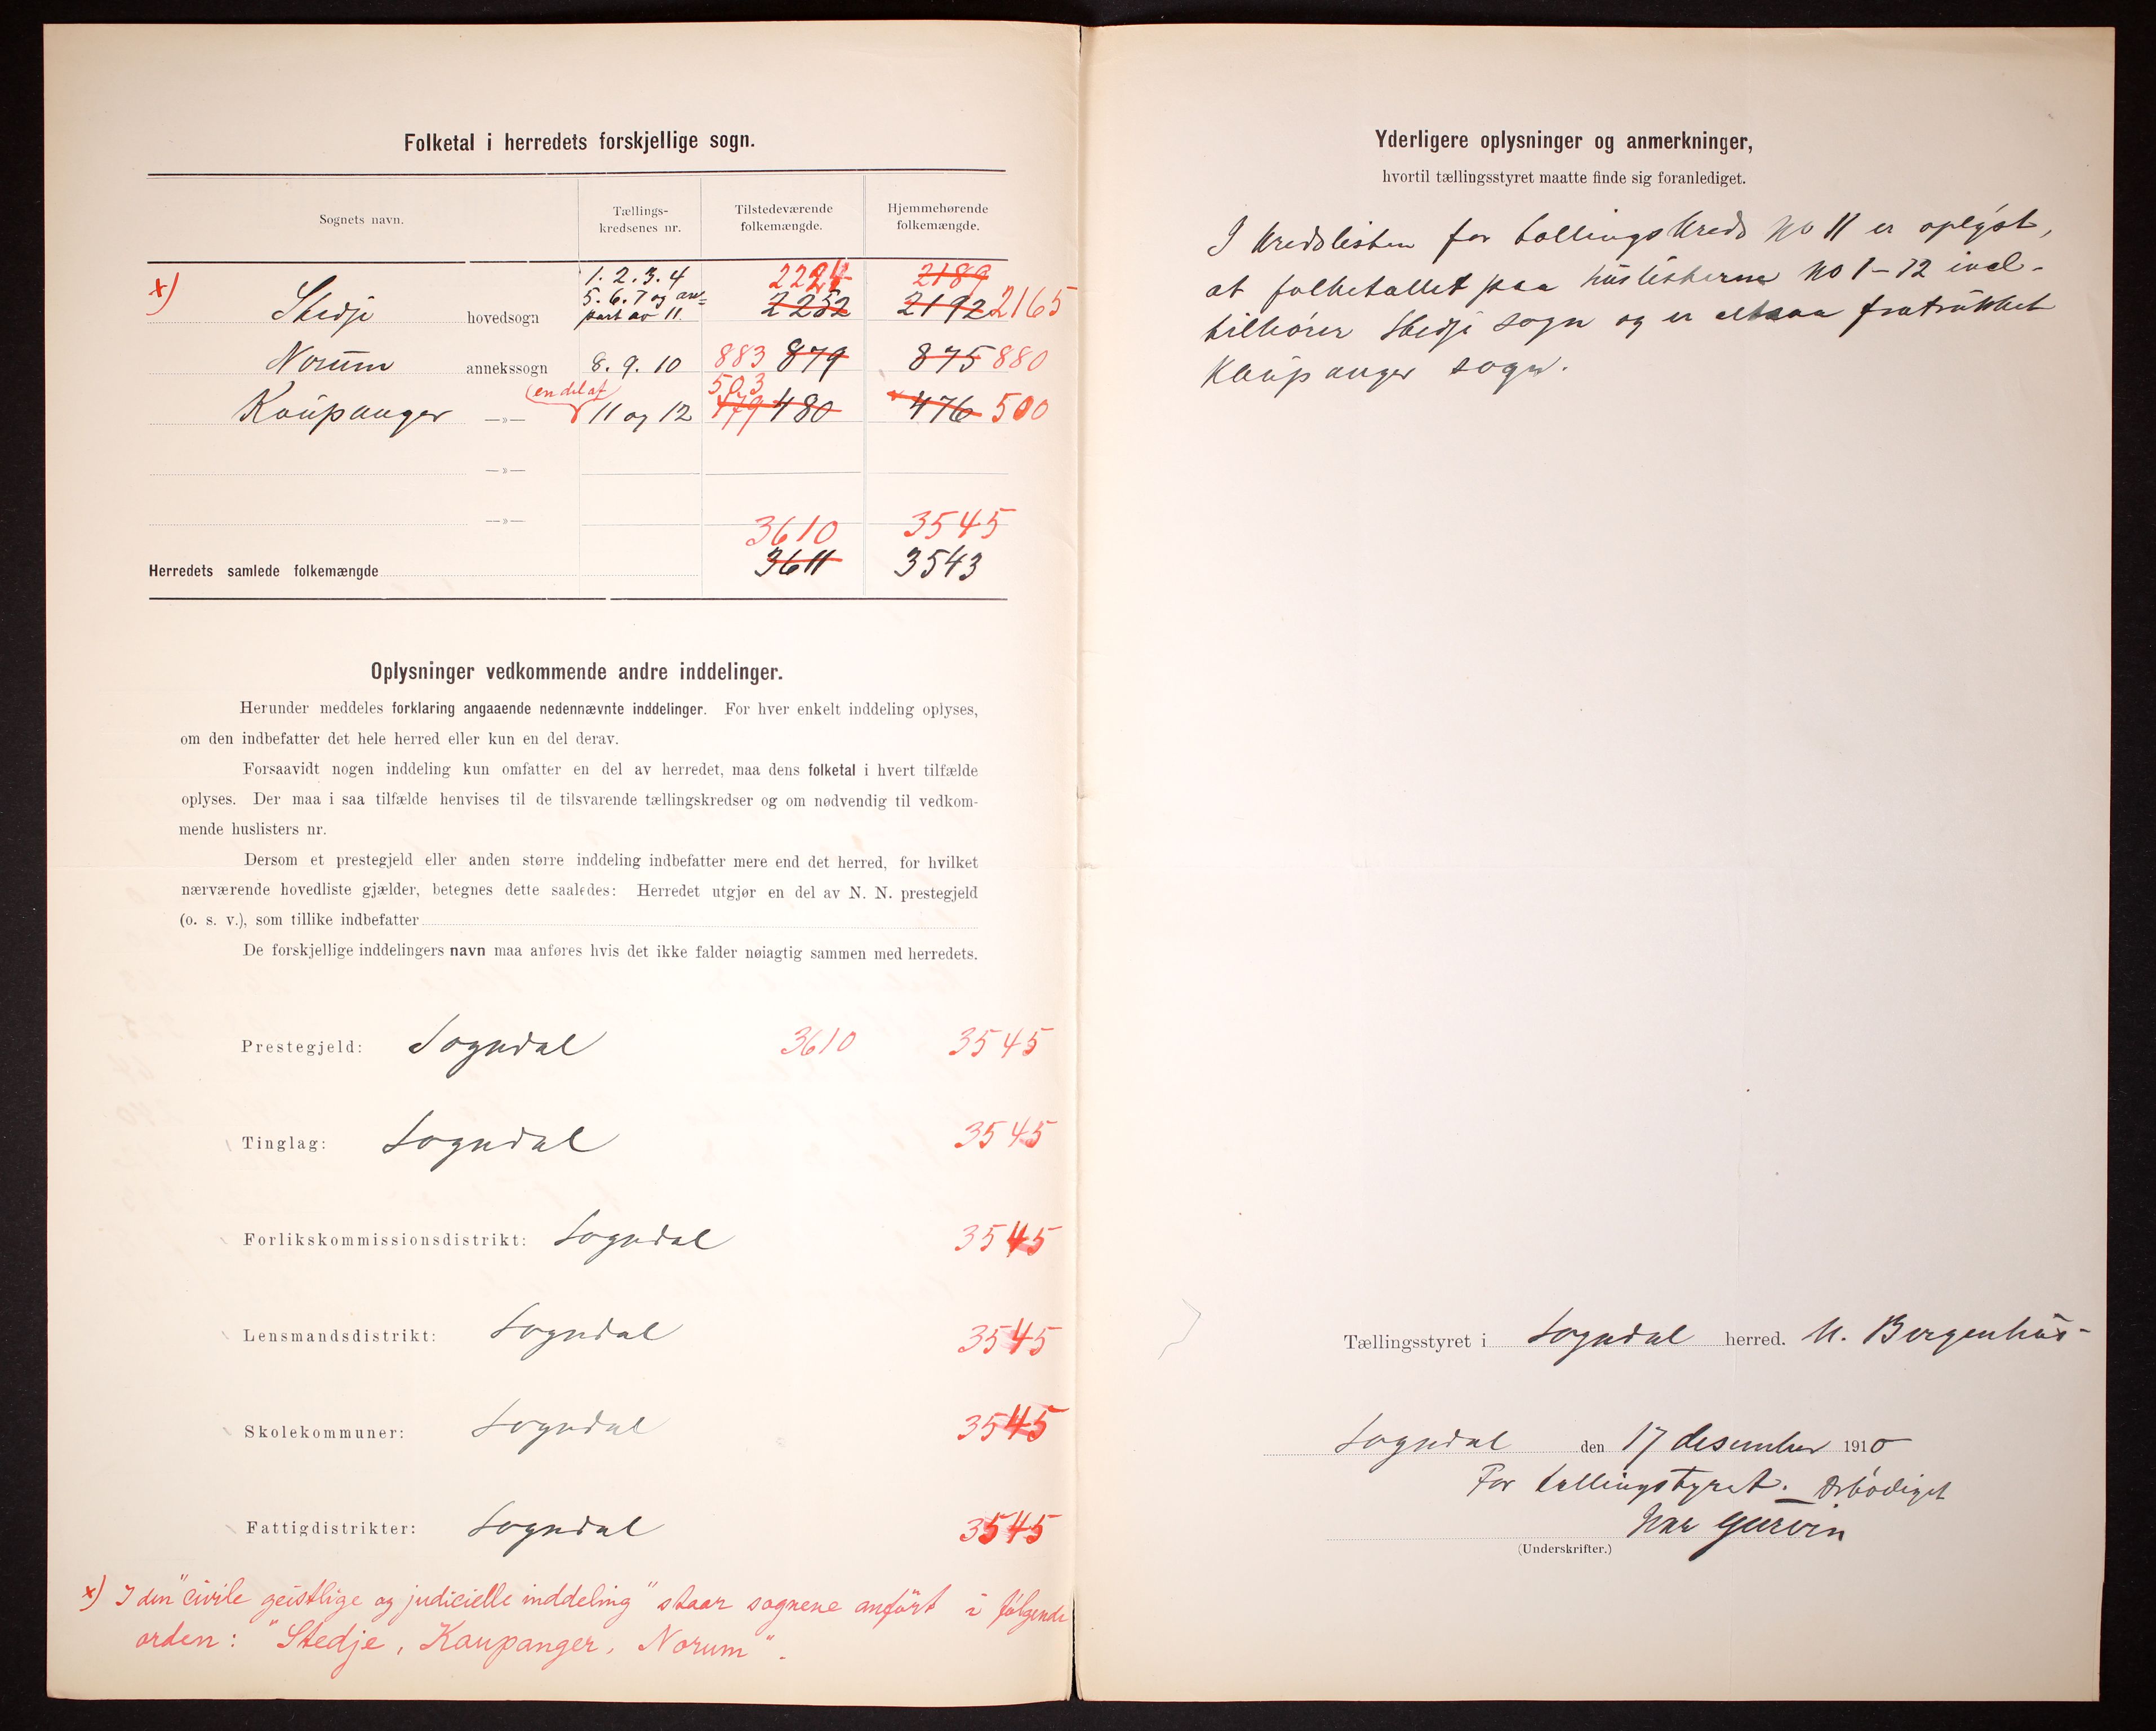 Folketal i herredets forskjellige sogn.
Sognets navn.
Tællings-
kredsenes nr.
Tilstedeværende
folkemængde.
Hjemmehørende
folkemængde.
x)
Stedje hovedsogn
1. 2. 3. 4
5. 6. 7 og an=
part av 11.
2224
2252
2189
2192 2165
Norum annekssogn 8. 9. 10 883 879 875 880
(en del af
503
Kaupanger —»— 11 og 12 479 480 476 500
—»—
—»—
3610 3545
Herredets samlede folkemængde 3611 3543
Oplysninger vedkommende andre inddelinger.
Herunder meddeles forklaring angaaende nedennævnte inddelinger. For hver enkelt inddeling oplyses,
om den indbefatter det hele herred eller kun en del derav.
Forsaavidt nogen inddeling kun omfatter en del av herredet, maa dens folketal i hvert tilfælde
oplyses. Der maa i saa tilfælde henvises til de tilsvarende tællingskredser og om nødvendig til vedkom-
mende huslisters nr.
Dersom et prestegjeld eller anden større inddeling indbefatter mere end det herred, for hvilket
nærværende hovedliste gjælder, betegnes dette saaledes: Herredet utgjør en del av N. N. prestegjeld
(o. s. v.), som tillike indbefatter
De forskjellige inddelingers navn maa anføres hvis det ikke falder nøiagtig sammen med herredets.
Prestegjeld: Sogndal 3610 3545
Tinglag: Sogndal 3545
Forlikskommissionsdistrikt: Sogndal 3545
Lensmandsdistrikt: Sogndal 3545
Skolekommuner: Sogndal 3545
Fattigdistrikter: Sogndal 3545
x) I den "civile geistlige og judicielle inddeling" staar sognene anført i følgende
orden: "Stedje, Kaupanger, Norum".
Yderligere oplysninger og anmerkninger,
hvortil tællingsstyret maatte finde sig foranlediget.
I kredslisten for tællingskreds No 11 er oplyst,
at folketallet paa huslisterne No 1-12 incl.
tilhører Stedje sogn og er altsaa fratrukket
Kaupanger sogn.
Tællingsstyret i Sogndal herred. N. Bergenhus-
Sogndal den 17 desember 1910
For tællingstyret. Ærbødigst
Gurvin
(Underskrifter.)